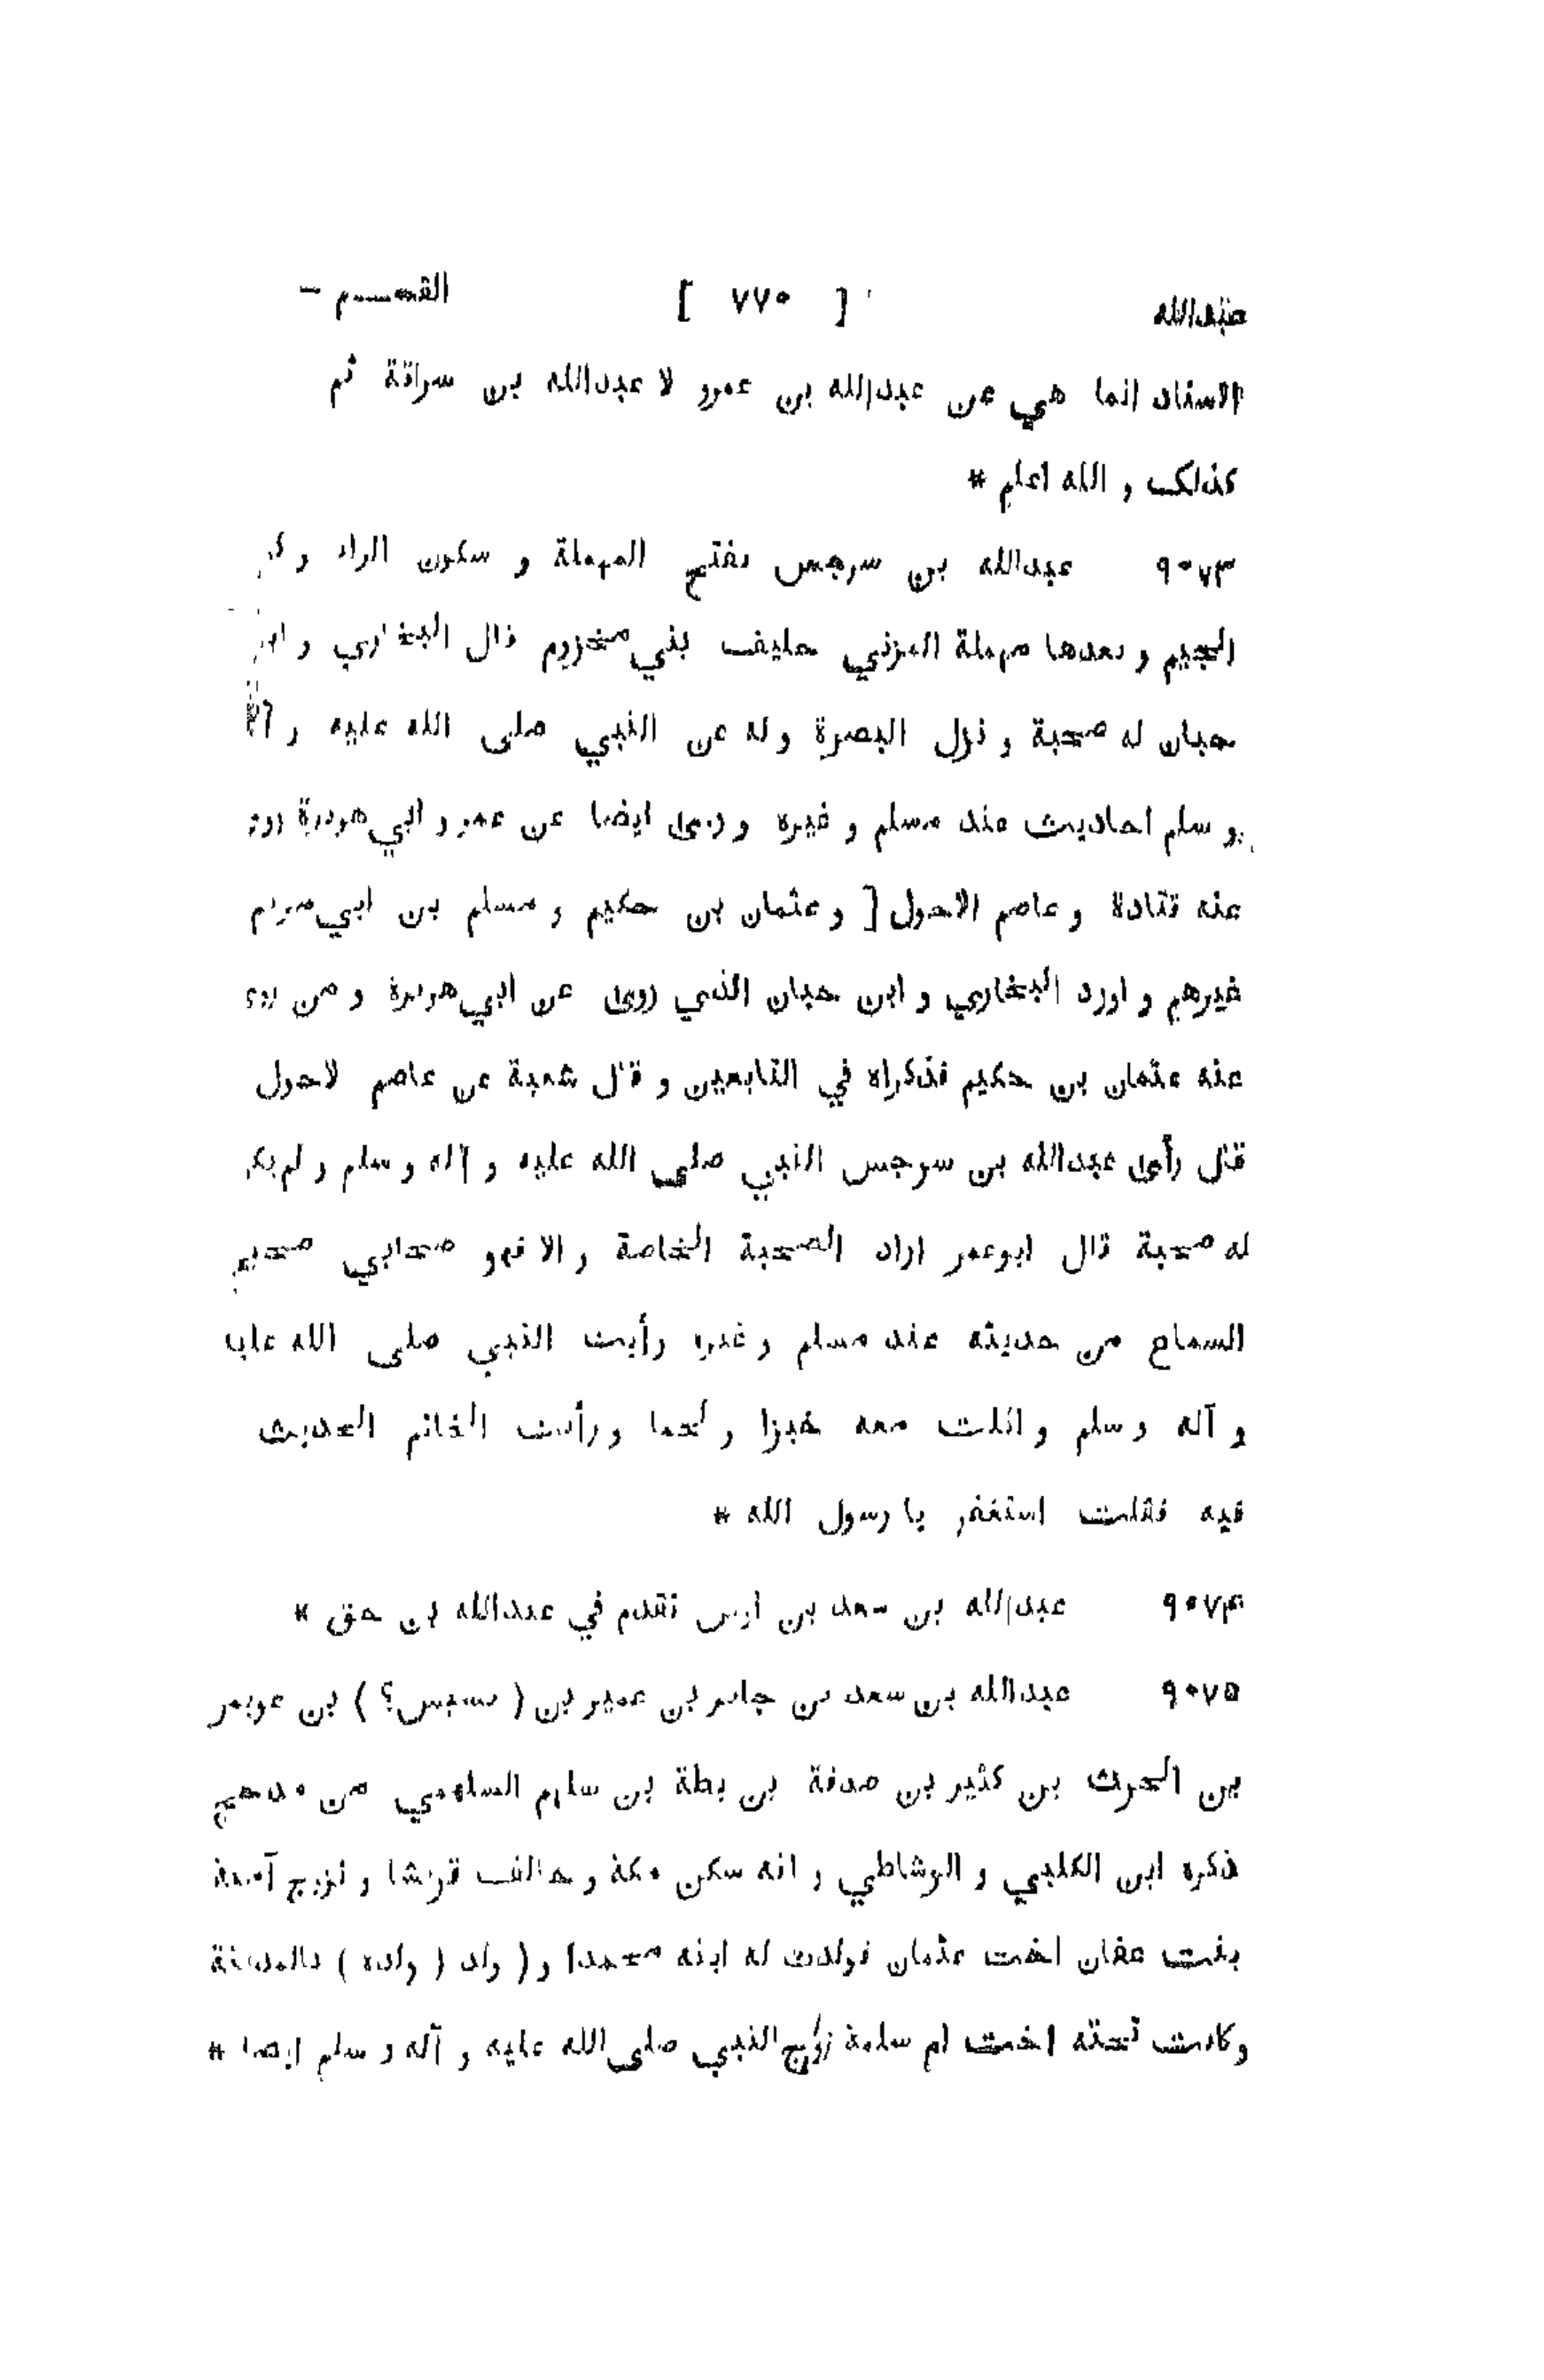 عبدالله [ ٧٧٠ ] القسم -
الاسناد انما هي عن عبدالله بن عمرو لا عبدالله بن سراقة ثم
كذلك و الله اعلم *
٩٠٧٣ عبدالله بن سرجس بفتح المهملة و سكون الراء و
الجيم و بعدها مهملة المزني حليف بني مخزوم قال البخاري و ابن
حبان له صحبة و نزل البصرة و له عن النبي صلى الله عليه و آله
و سلم احاديث عند مسلم و غيره و روى ايضا عن عمر و ابي هريرة روى
عنه قتادة و عاصم الاحول [ و عثمان بن حكيم و مسلم بن ابي مريم
غيرهم و اورد البخاري و ابن حبان الذي روى عن ابي هريرة و من روى
عنه عثمان بن حكيم فذكراه في التابعين و قال شعبة عن عاصم لاحول
قال رأى عبدالله بن سرجس النبي صلى الله عليه و آله و سلم و لم يكن
له صحبة قال ابوعمر اراد الصحبة الخاصة و الا فهو صحابي صحيح
السماع من حديثه عند مسلم و غيره رأيت النبي صلى الله عليه
و آله و سلم و اكلت معه خبزا و لحما و رأيت الخاتم الحديث
فيه فقلت استغفر يا رسول الله *
٩٠٧۴ عبدالله بن سعد بن اوس تقدم في عبدالله بن حق *
٩٠٧۵ عبدالله بن سعد بن جابر بن عمير بن ( بسيس؟ ) بن عويمر
بن الحرث بن كثير بن صدقة بن بطة بن سلهم السلهمي من مذحج
ذكره ابن الكلبي و الرشاطي و انه سكن مكة و حالف قريشا و تزوج آمنة
بنت عفان اخت عثمان فولدت له ابنه محمدا و ( ولد ( ولده ) بالمدينة
وكانت تحته اخت ام سلمة زوج النبي صلى الله عليه و آله و سلم ايضا *